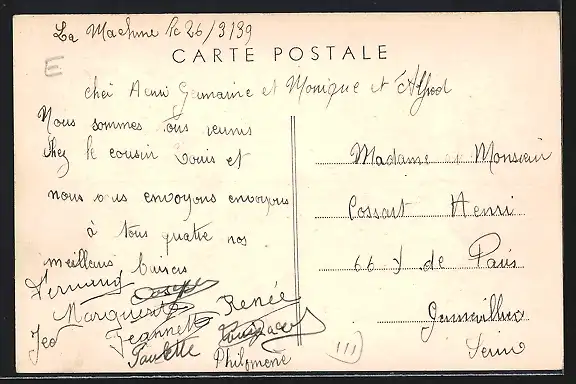 La Machine le 26/3/39
E
CARTE POSTALE
cher Henri Germaine et Monique et Alfred
Nous sommes tous reunis
chez le cousin Louis et
nous vous envoyons envoyons
à tous quatre nos
meilleurs baisers
Fernand Joseph
Marguerite Renée
Leo Jeannette
Paulette Philomene
Madame et Monsieur
Cossart Henri
66 de Paris
Gennevilliers
Seine